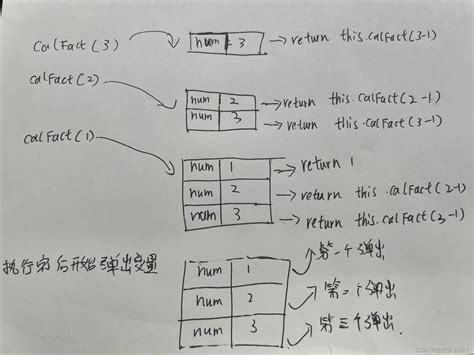 calFact(3) num 3 → return this.calFact(3-1)
calFact(2)
num 2 → return this.calFact(2-1)
num 3 → return this.calFact(3-1)
calFact(1)
num 1 → return 1
num 2 → return this.calFact(2-1)
num 3 → return this.calFact(3-1)
执行完后开始弹出变量
num 1 第一个弹出
num 2 第二个弹出
num 3 第三个弹出.